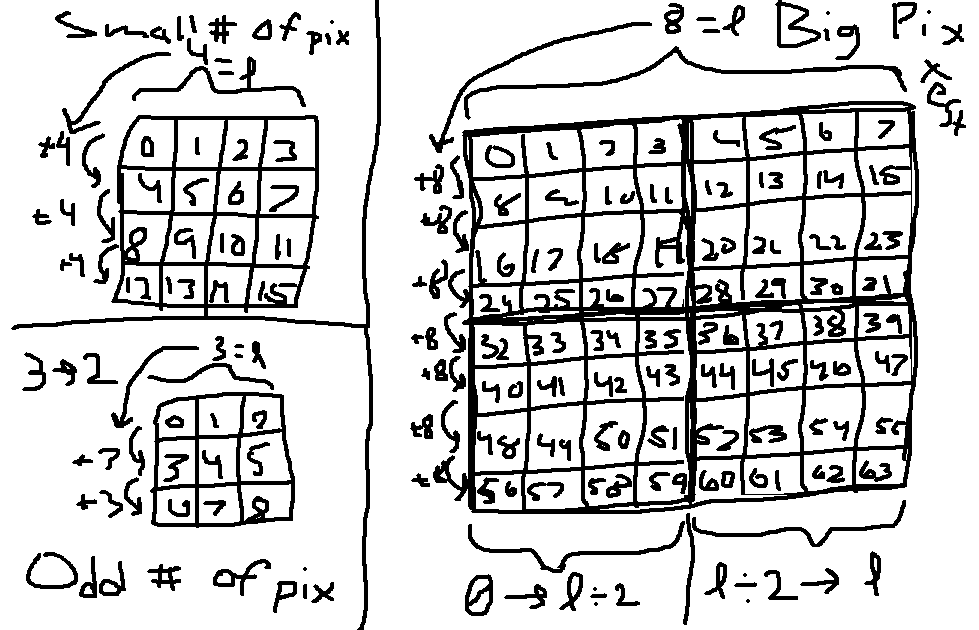 Small # of pix
4 = l
+4
0 1 2 3
4 5 6 7
+4
8 9 10 11
+4
12 13 14 15
3→2
3 = l
0 1 2
+3
3 4 5
+3
6 7 8
Odd # of pix
8 = l Big Pix
0 1 2 3 4 5 6 7
+8
8 9 10 11 12 13 14 15
+8
16 17 18 19 20 21 22 23
+8
24 25 26 27 28 29 30 31
+8
32 33 34 35 36 37 38 39
+8
40 41 42 43 44 45 46 47
+8
48 49 50 51 52 53 54 55
+8
56 57 58 59 60 61 62 63
0 → l ÷ 2
l ÷ 2 → l